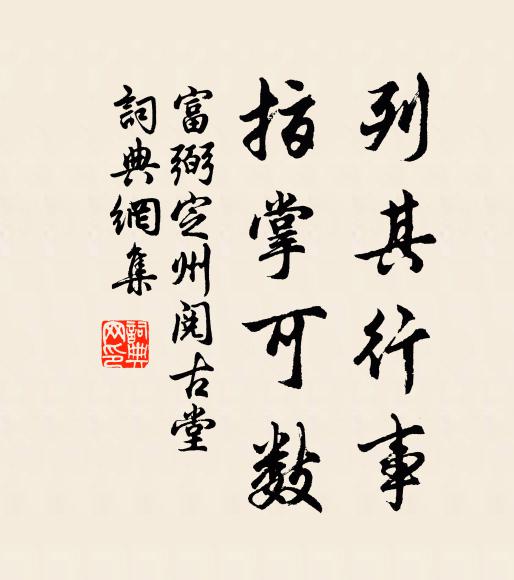 列其行事
指掌可数
富弼定州阅古堂
詞典網集
詞典
网印